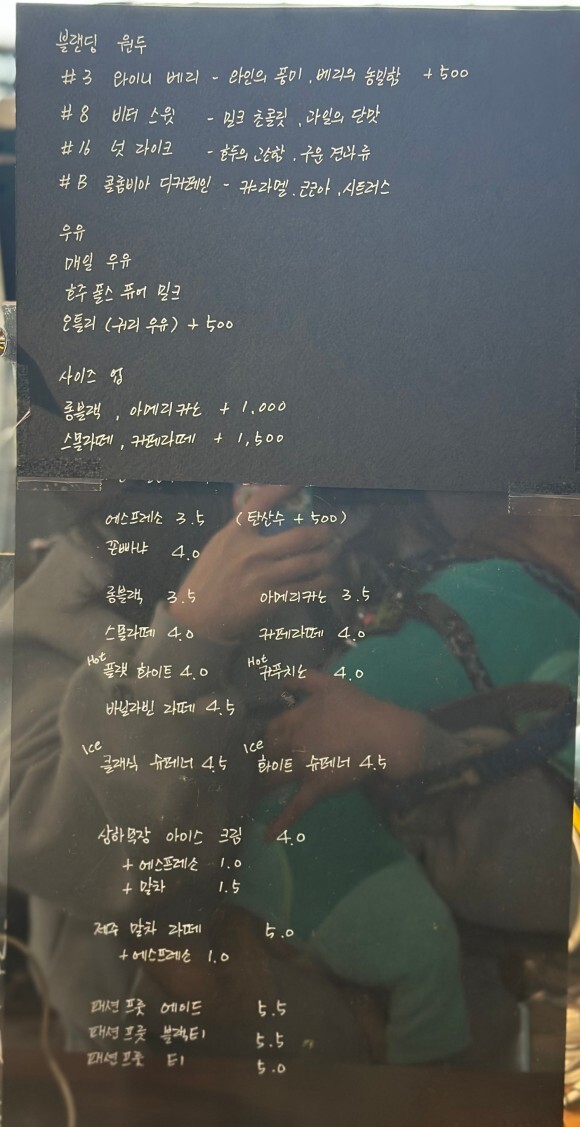 블랜딩 원두
#3 와이니 베리 - 와인의 풍미, 베리의 농밀함 +500
#8 비터 스윗 - 밀크 초콜릿, 과일의 단맛
#16 넛 라이크 - 호두의 고소함, 구운 견과류
#B 콜롬비아 디카페인 - 캬라멜, 코코아, 시트러스
우유
매일 우유
호주 폴스 퓨어 밀크
오틀리 (귀리 우유) +500
사이즈 업
롱블랙, 아메리카노 + 1.000
스몰라떼, 카페라떼 + 1,500
에스프레소 3.5 (탄산수 +500)
꼰빠냐 4.0
롱블랙 3.5 아메리카노 3.5
스몰라떼 4.0 카페라떼 4.0
Hot 플랫 화이트 4.0 Hot 카푸치노 4.0
바닐라빈 라떼 4.5
Ice 클래식 슈페너 4.5 Ice 화이트 슈페너 4.5
상하목장 아이스 크림 4.0
+ 에스프레소 1.0
+ 말차 1.5
제주 말차 라떼 5.0
+ 에스프레소 1.0
패션프룻 에이드 5.5
패션프룻 블랙티 5.5
패션프룻 티 5.0